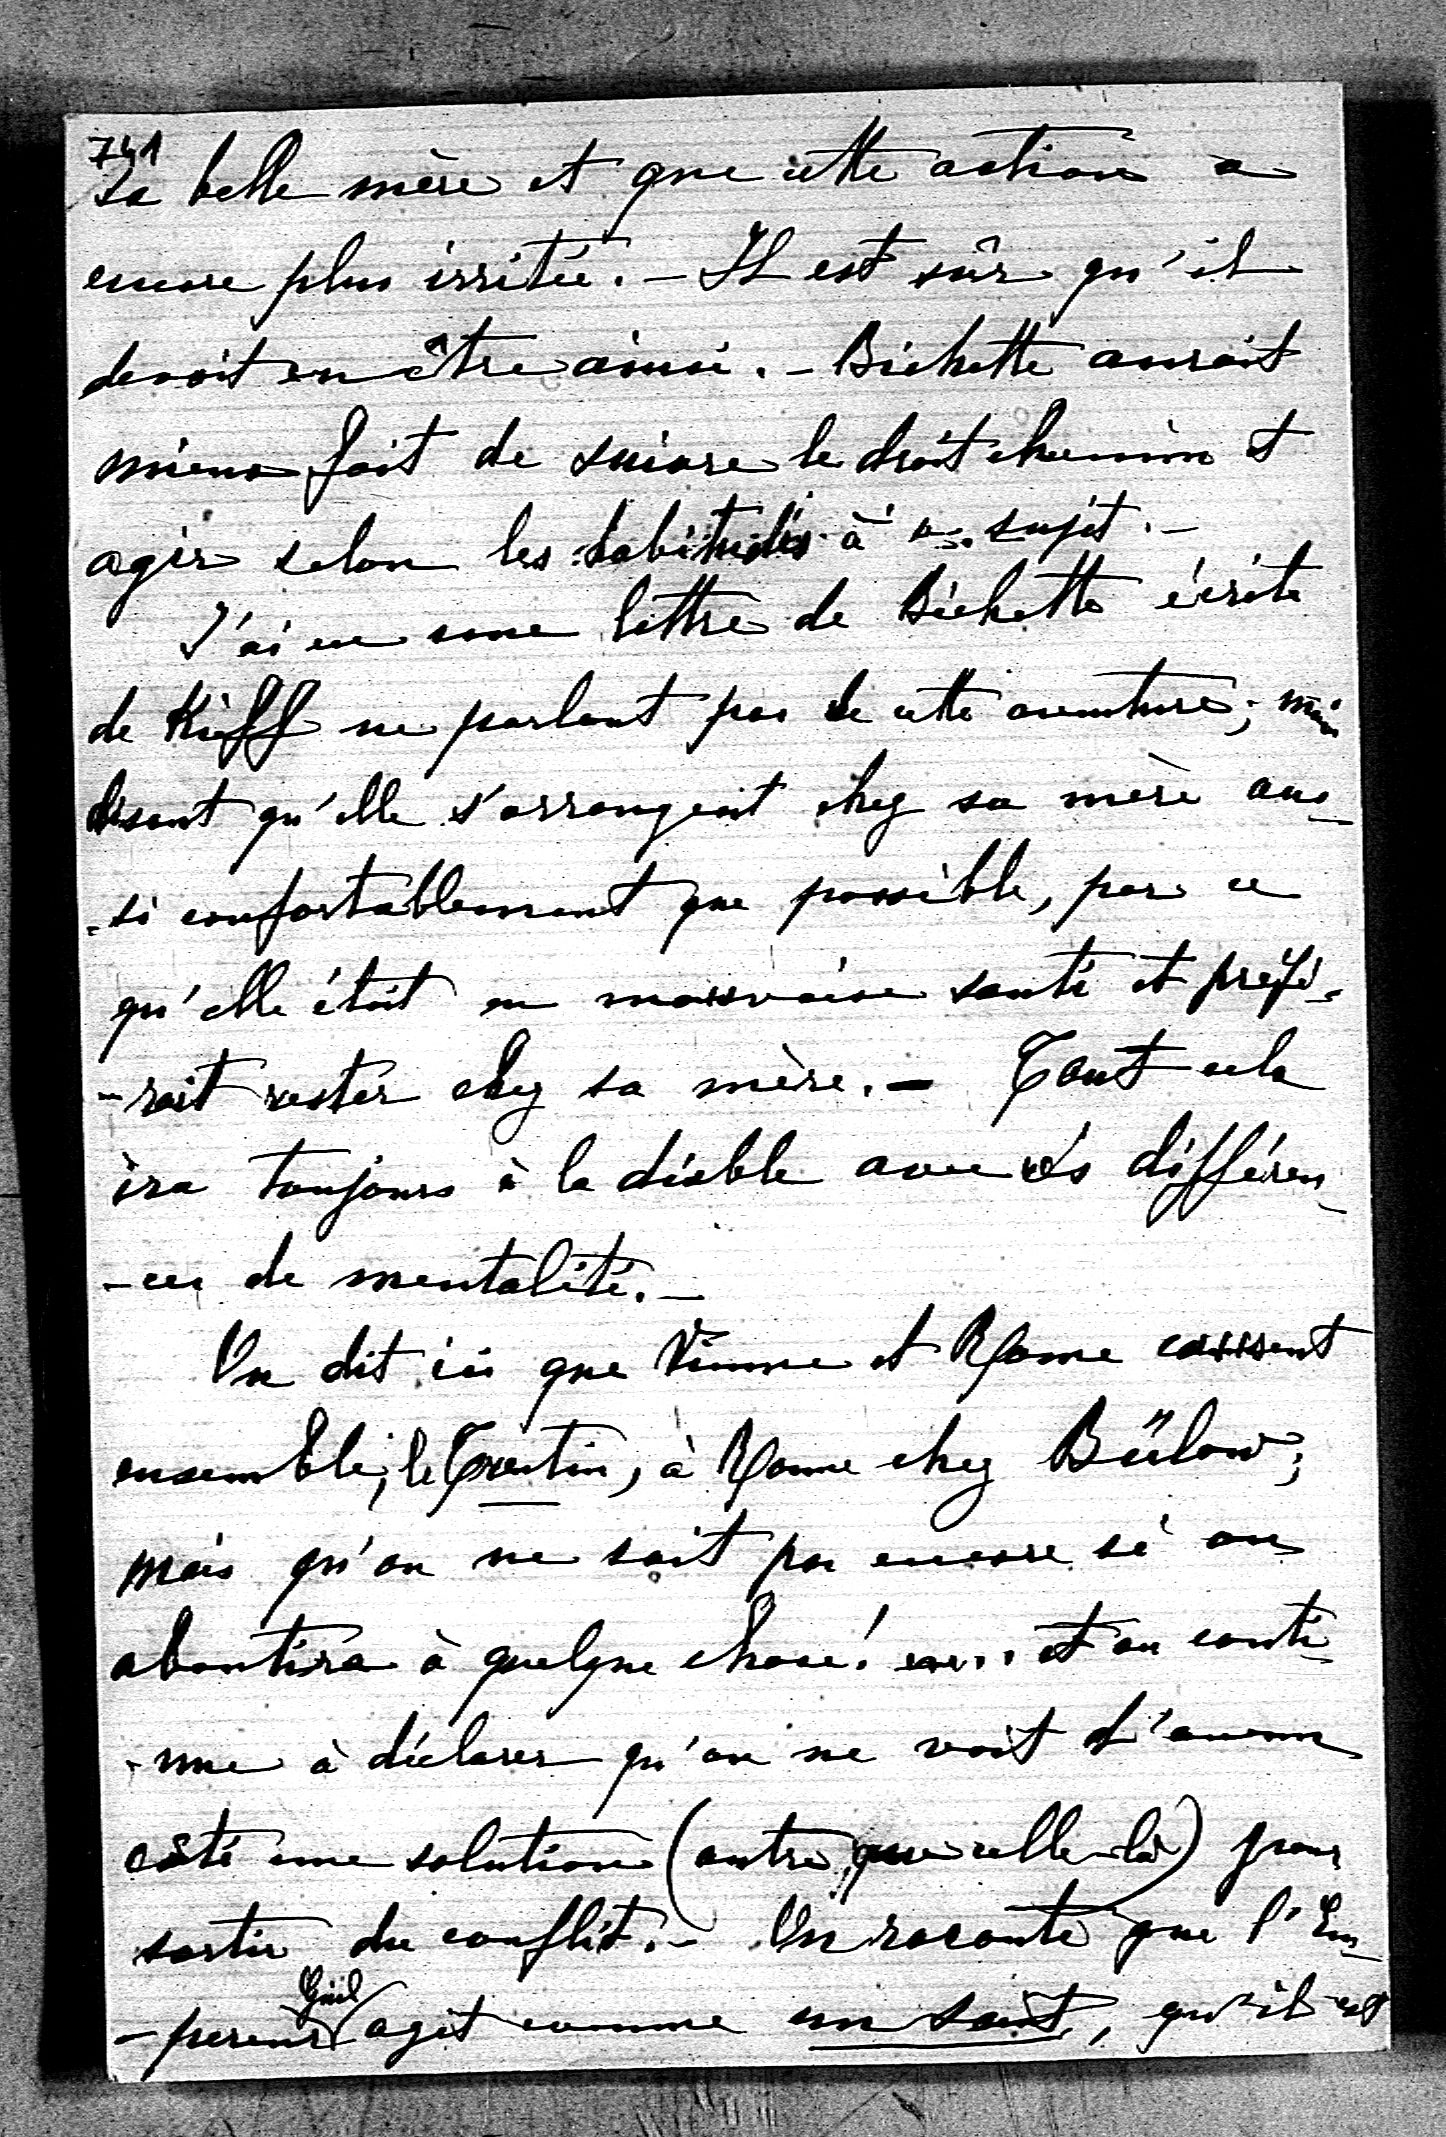 741
sa belle mère et que cette action a
encore plus irritée. – Il est sûr qu'il
devait en être ainsi. – Bichette aurait
mieux fait de suivre le droit chemin et
agir selon les habitudes à ce sujet. –
J'ai eu une lettre de Bichette écrite
de Kieff ne parlant pas de cette aventure; mais
disant qu'elle s'arrangeait chez sa mère aus-
-si confortablement que possible, par ce
qu'elle était en mauvaise santé et préfé-
-rait rester chez sa mère. – Tout cela
ira toujours à la diable avec ces différen-
-ces de mentalité. –
On dit ici que Vienne et Rome causent
ensemble, le Trentin, à Rome chez Bülow;
mais qu'on ne sait pas encore si on
aboutira à quelque chose! .... et on conti-
-nue à déclarer qu'on ne voit d'aucun
côté une solution (autre que celle-là) pour
sortir du conflit. – On raconte que l'Em-
-pereur Guil agit comme un saint, qu'il est